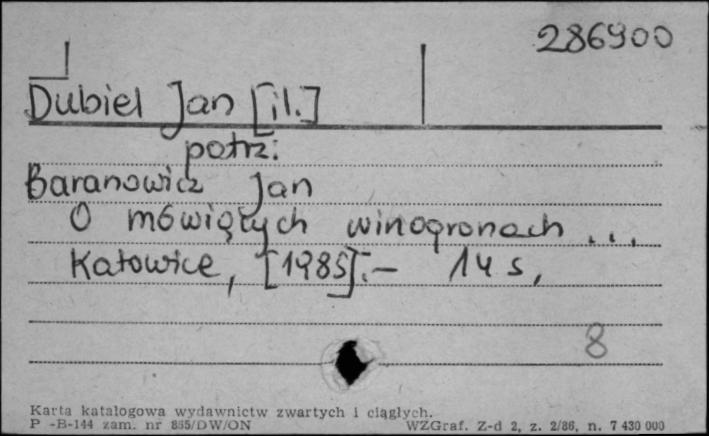 286900
Dubiel Jan [il.]
potrz:
Baranowicz Jan
O mówiących winogronach ...
Katowice, [1985].- 14 s,
8
Karta katalogowa wydawnictw zwartych i ciągłych.
P -B-144 zam. nr 835/DW/ON WZGraf. Z-d 2, z. 2/86, n. 7 430 000